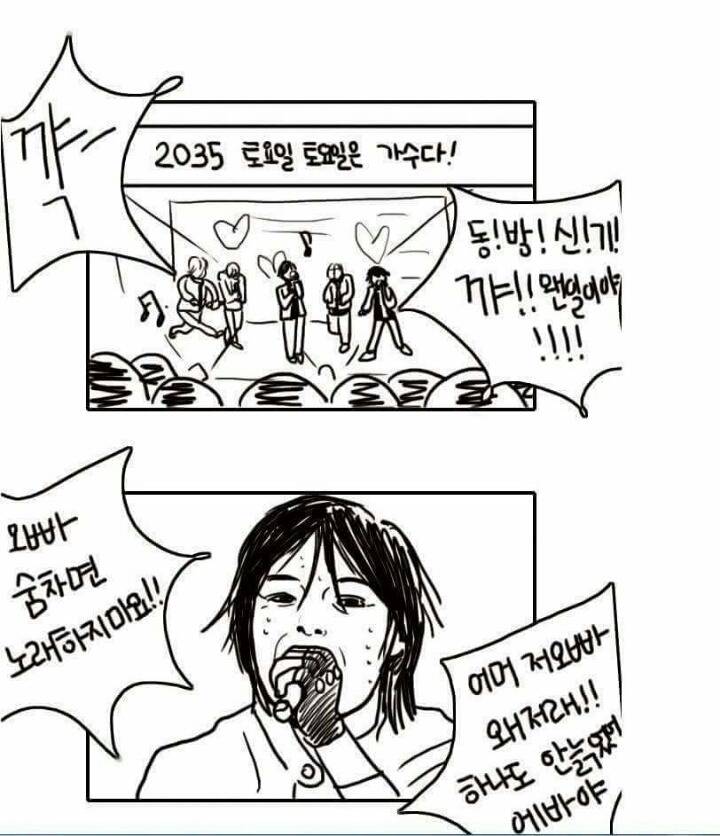 꺅
2035 토요일 토요일은 가수다!
동!방!신!기!
꺄!! 왠일이야
!!!!
오빠
숨차면
노래하지마요!!
어머 저오빠
왜저래!!
하나도 안늙었어
에바야